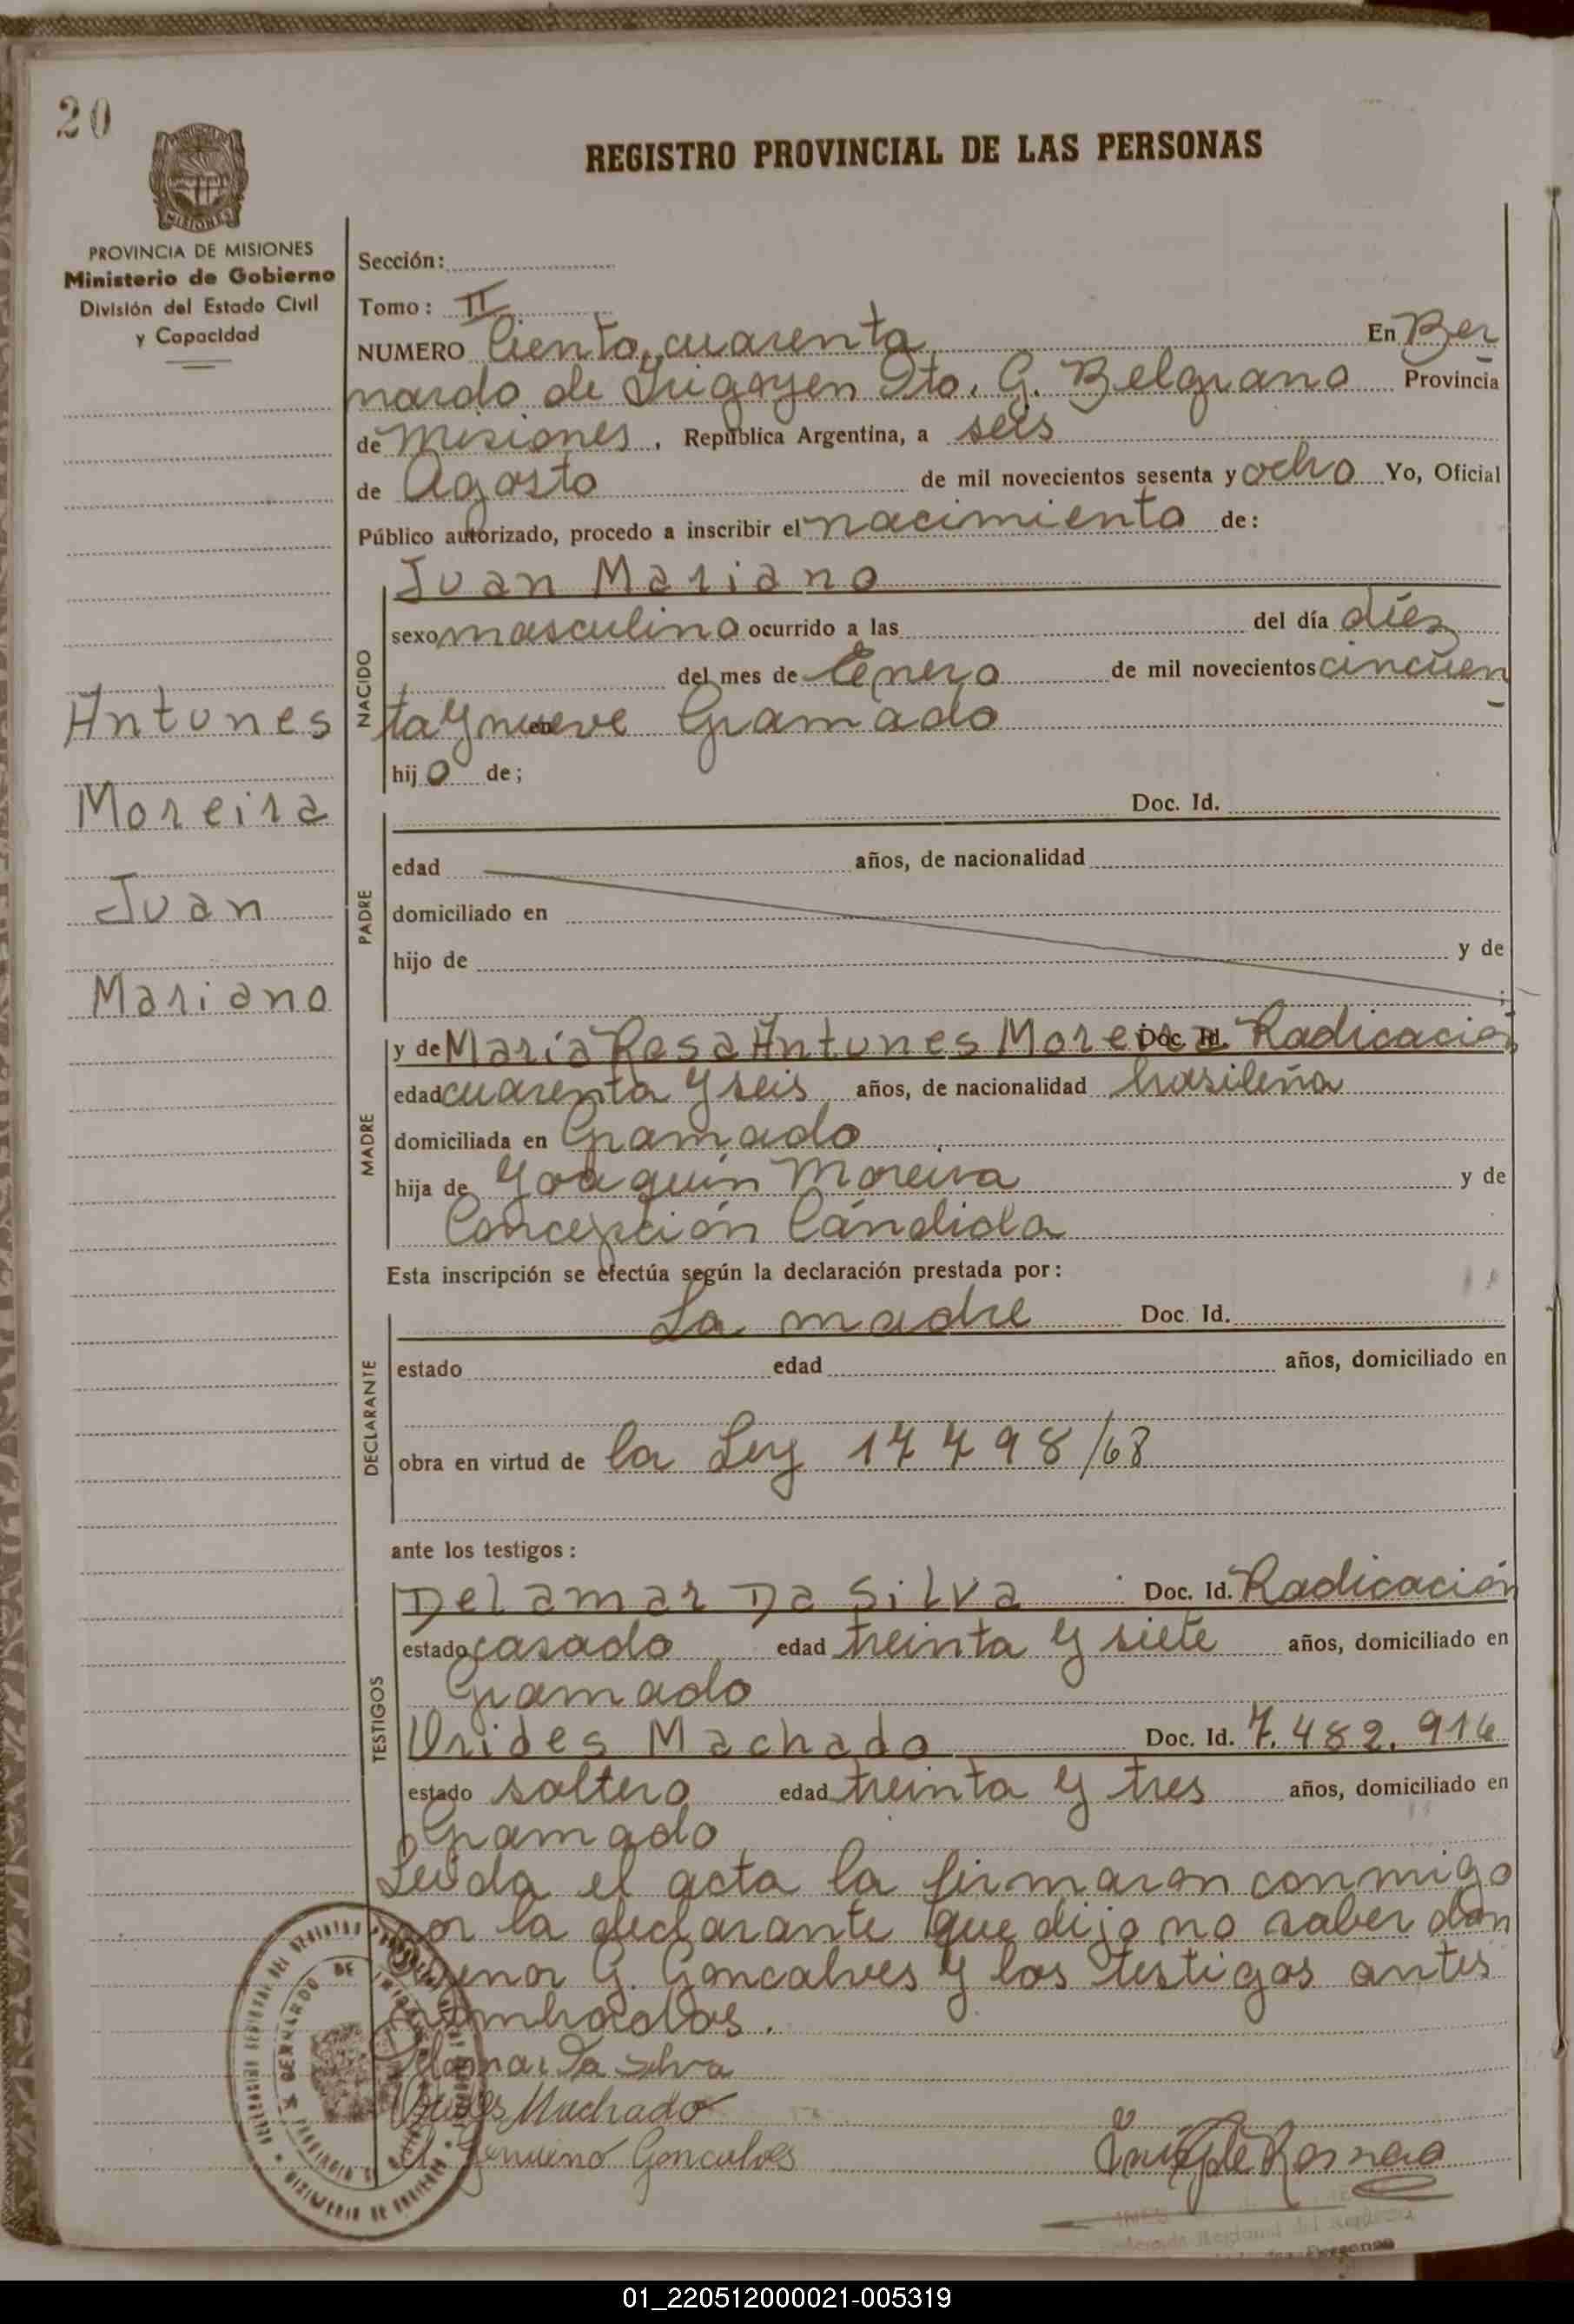 20
REGISTRO PROVINCIAL DE LAS PERSONAS
MISIONES
PROVINCIA DE MISIONES
Ministerio de Gobierno
División del Estado Civil
y Capacidad
Sección:
Tomo: II
NUMERO Ciento cuarenta En Ber
nardo de Irigoyen Dto. G. Belgrano Provincia
de Misiones, República Argentina, a seis
de Agosto de mil novecientos sesenta y ocho Yo, Oficial
Público autorizado, procedo a inscribir el nacimiento de:
NACIDO
Juan Mariano
sexo masculino ocurrido a las del día diez
del mes de Enero de mil novecientos cincuen
ta y nueve en Gramado
hijo de;
Antunes
Moreira
Juan
Mariano
PADRE
Doc. Id.
edad años, de nacionalidad
domiciliado en
hijo de y de
;
MADRE
y de María Rosa Antunes Moreira Doc. Id. Radicación
edad cuarenta y seis años, de nacionalidad brasileña
domiciliada en Gramado
hija de Joaquín Moreira y de
Concepción Cándida
Esta inscripción se efectúa según la declaración prestada por:
DECLARANTE
La madre Doc. Id.
estado edad años, domiciliado en
obra en virtud de la Ley 17498/68
ante los testigos:
TESTIGOS
Delamar Da Silva Doc. Id. Radicación
estado casado edad treinta y siete años, domiciliado en
Gramado
Urides Machado Doc. Id. 7.482.916
estado soltero edad treinta y tres años, domiciliado en
Gramado
Leída el acta la firmaron conmigo
por la declarante que dijo no saber don
G. Goncalves y los testigos antes
nombrados.
Delamar Da Silva
Urides Machado
Genuino Goncalves
BERNARDO DE IRIGOYEN
01_220512000021-005319